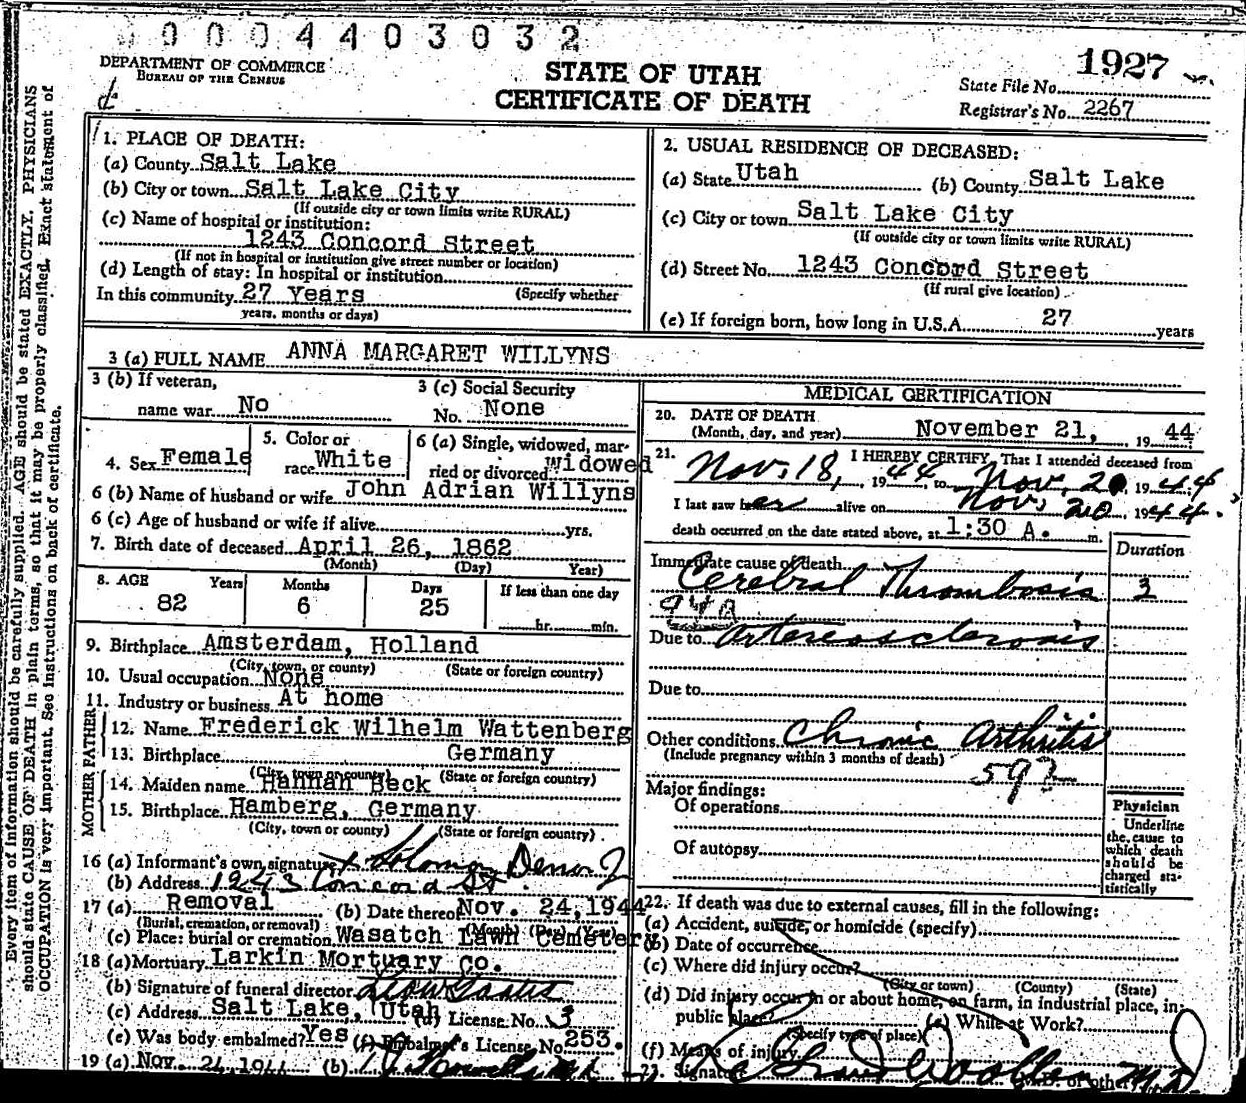 0004403032
DEPARTMENT OF COMMERCE
BUREAU OF THE CENSUS
STATE OF UTAH
CERTIFICATE OF DEATH
State File No. 1927
Registrar's No. 2267
Every item of information should be carefully supplied. AGE should be stated EXACTLY. PHYSICIANS
should state CAUSE OF DEATH in plain terms, so that it may be properly classified. Exact statement of
OCCUPATION is very important. See instructions on back of certificate.
1. PLACE OF DEATH:
(a) County Salt Lake
(b) City or town Salt Lake City
(If outside city or town limits write RURAL)
(c) Name of hospital or institution:
1243 Concord Street
(If not in hospital or institution give street number or location)
(d) Length of stay: In hospital or institution
In this community 27 Years (Specify whether
years, months or days)
2. USUAL RESIDENCE OF DECEASED:
(a) State Utah (b) County Salt Lake
(c) City or town Salt Lake City
(If outside city or town limits write RURAL)
(d) Street No. 1243 Concord Street
(If rural give location)
(e) If foreign born, how long in U.S.A. 27 years
3 (a) FULL NAME ANNA MARGARET WILLYNS
3 (b) If veteran,
name war No
3 (c) Social Security
No. None
4. Sex Female
5. Color or
race White
6 (a) Single, widowed, mar-
ried or divorced Widowed
6 (b) Name of husband or wife John Adrian Willyns
6 (c) Age of husband or wife if alive yrs.
7. Birth date of deceased April 26, 1862
(Month) (Day) Year)
8. AGE Years Months Days If less than one day
82 6 25 hr. min.
9. Birthplace Amsterdam, Holland
(City, town, or county) (State or foreign country)
10. Usual occupation None
11. Industry or business At home
FATHER
12. Name Frederick Wilhelm Wattenberg
13. Birthplace Germany
(City, town or county) (State or foreign country)
MOTHER
14. Maiden name Hannah Beck
15. Birthplace Hamberg, Germany
(City, town or county) (State or foreign country)
16 (a) Informant's own signature x Solomon
(b) Address 1243 Concord St.
17 (a) Removal (b) Date thereof Nov. 24, 1944
(Burial, cremation, or removal) (Month) (Day) (Year)
(c) Place: burial or cremation Wasatch Lawn Cemetery
18 (a) Mortuary Larkin Mortuary Co.
(b) Signature of funeral director
(c) Address Salt Lake, Utah (d) License No. 3
(e) Was body embalmed? Yes (f) Embalmer's License No. 253.
19 (a) Nov. 24, 1944 (b)
MEDICAL CERTIFICATION
20. DATE OF DEATH
(Month, day, and year) November 21, 19 44
21. I HEREBY CERTIFY, That I attended deceased from
Nov. 18, 1944 to Nov. 20, 1944
I last saw her alive on Nov. 20, 1944.
death occurred on the date stated above, at 1:30 A. m.
Duration
Immediate cause of death
Cerebral Thrombosis 3
Due to Arteriosclerosis
Due to
Other conditions Chronic Arthritis
(Include pregnancy within 3 months of death)
Major findings:
Of operations
Of autopsy
Physician
Underline
the cause to
which death
should be
charged sta-
tistically
22. If death was due to external causes, fill in the following:
(a) Accident, suicide, or homicide (specify)
(b) Date of occurrence
(c) Where did injury occur?
(City or town) (County) (State)
(d) Did injury occur in or about home, on farm, in industrial place, in
public place?
(Specify type of place) (e) While at Work?
(f) Means of injury
23. Signature M.D.
M.D. or other